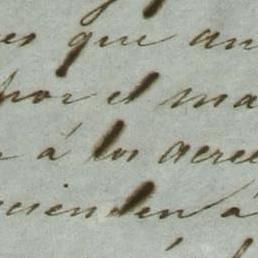 es que an
por el ma
á los acree
cienden á